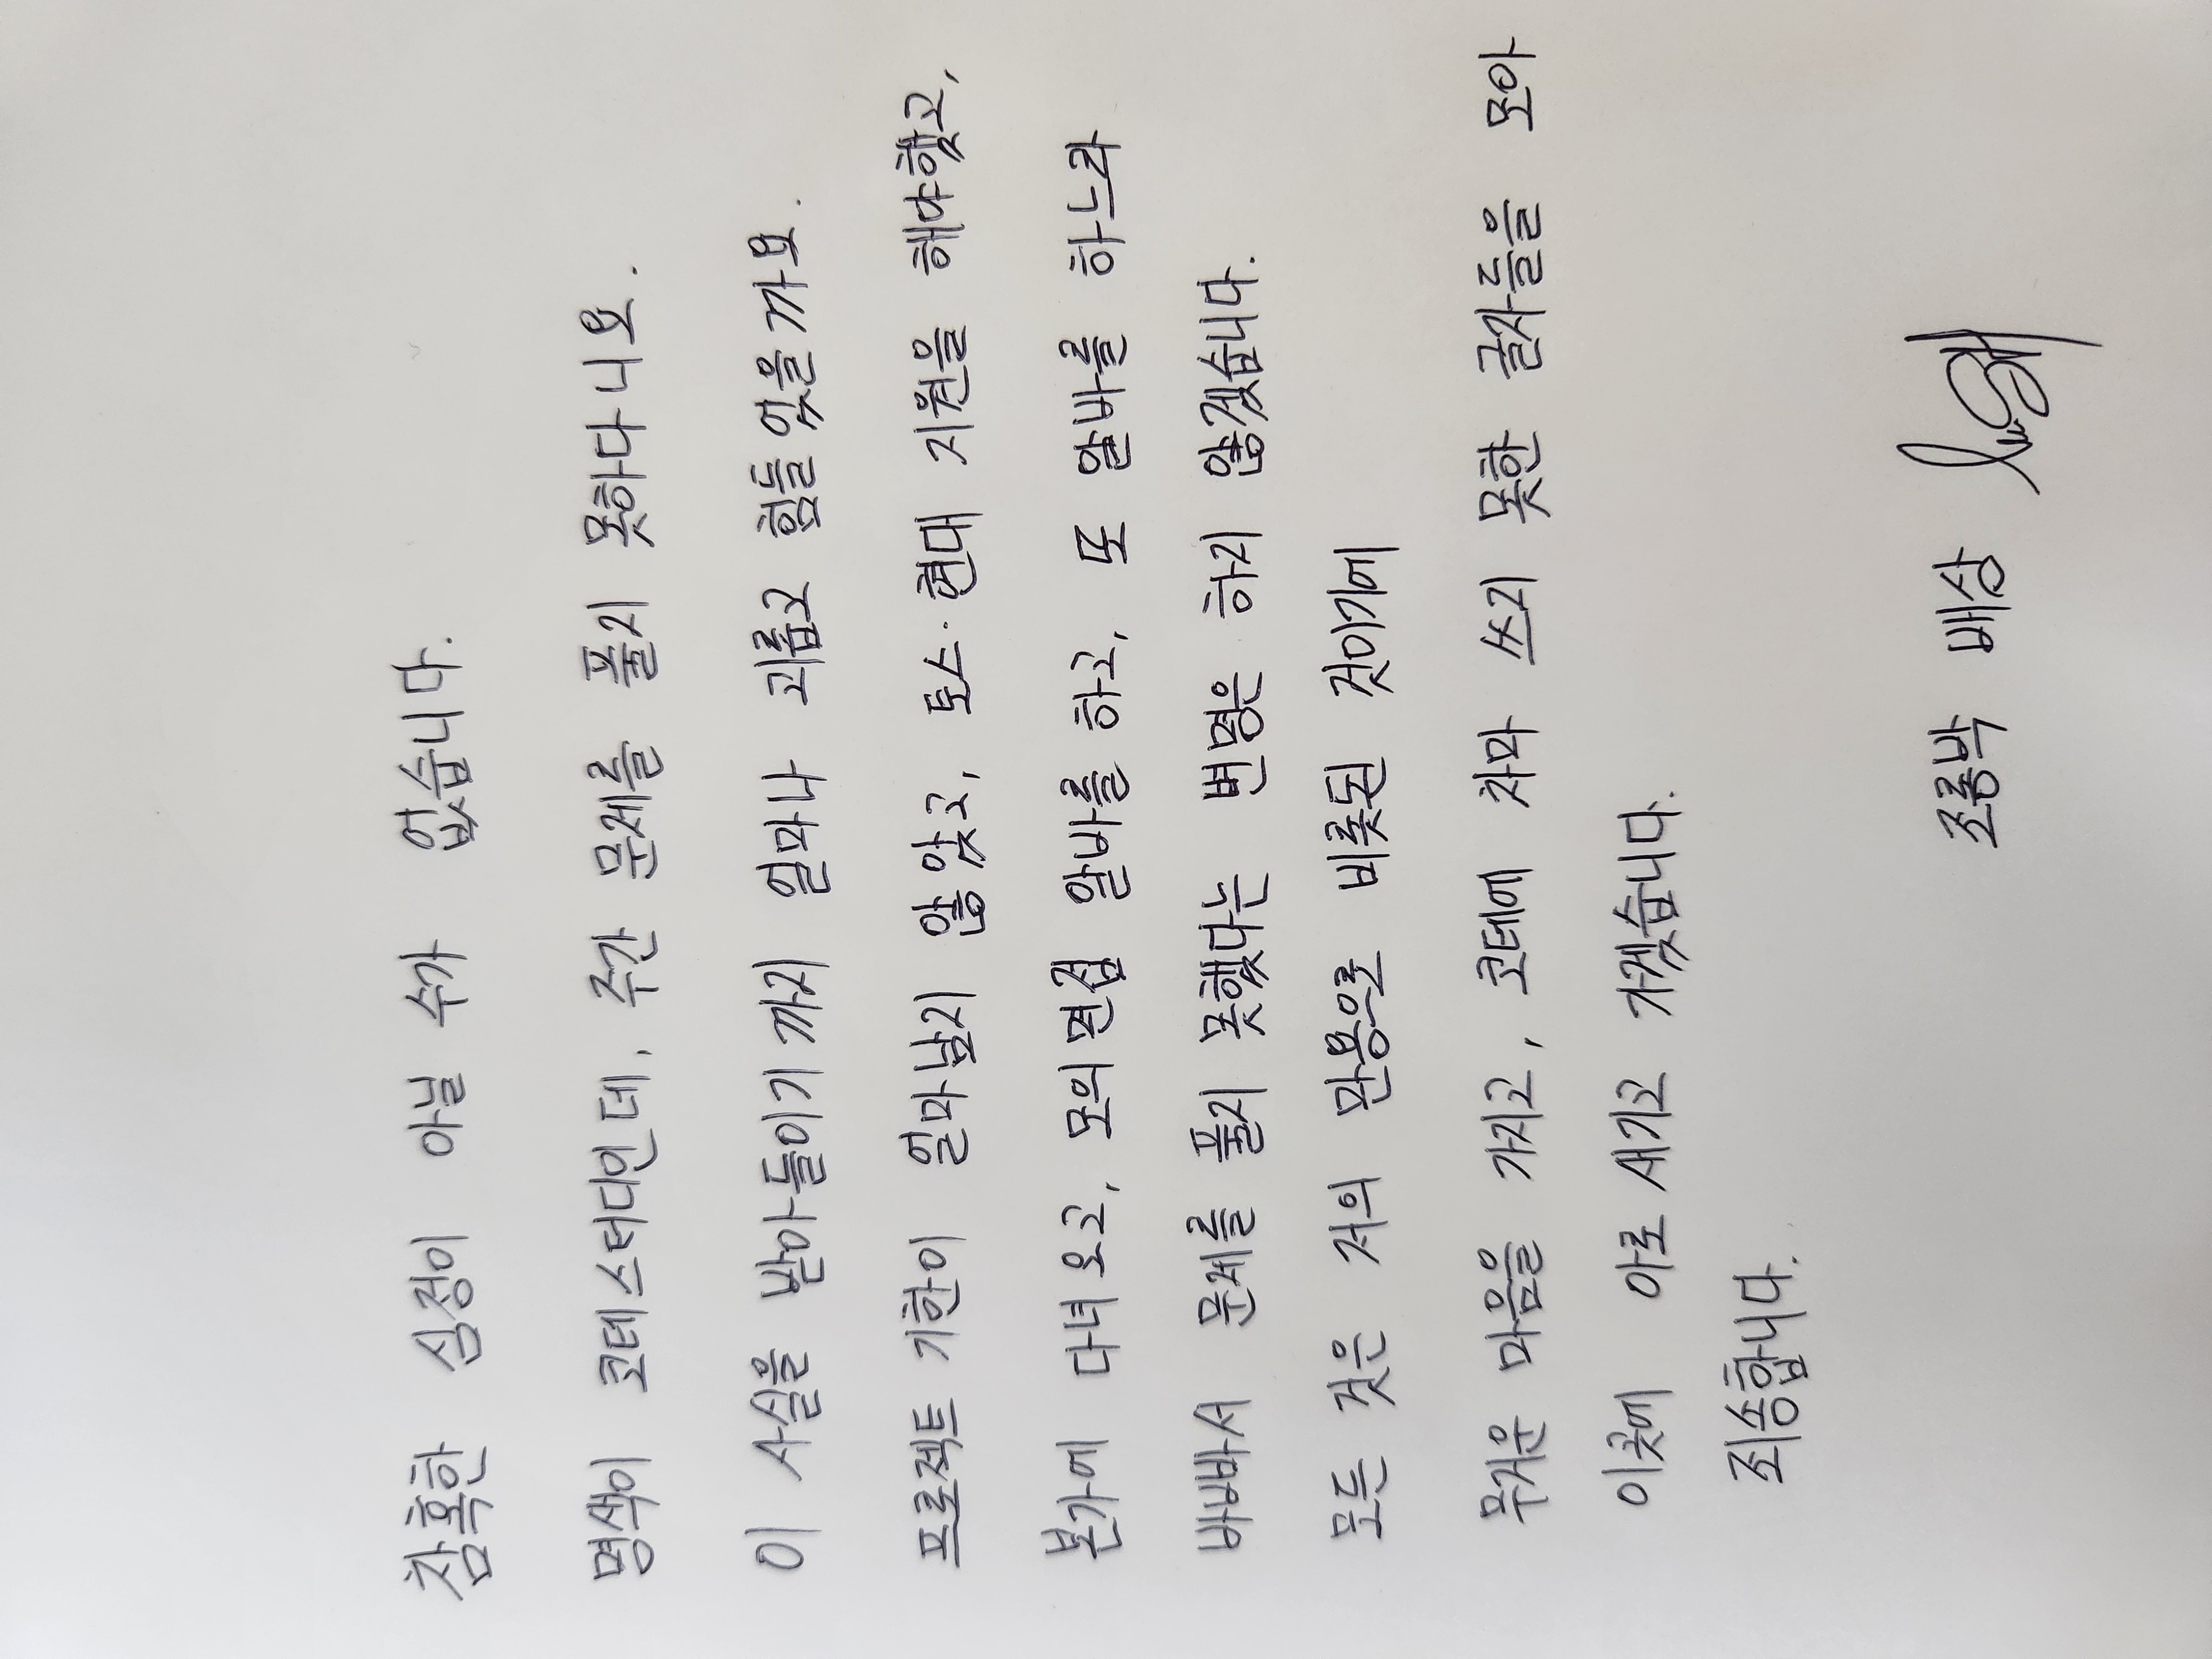 참혹한 심정이 아닐 수가 없습니다.
명색이 코테스터디인데, 주간 문제를 풀지 못하다니요.
이 사실을 받아들이기까지 얼마나 괴롭고 힘들었을까요.
프로젝트 기한이 얼마남지 않았고, 토스·현대 지원을 해야했고,
본가에 다녀오고, 모의면접 알바를 하고, 또 알바를 하느라
바빠서 문제를 풀지 못했다는 변명은 하지 않겠습니다.
모든 것은 저의 만용으로 비롯된 것이기에
무거운 마음을 가지고, 코테에 차마 쓰지 못한 글자들을 모아
이곳에 아로새기고 가겠습니다.
죄송합니다.
조롱박 배상